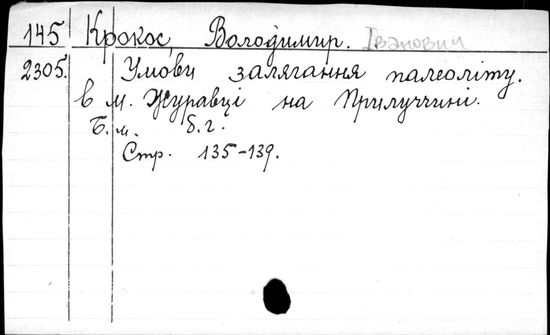 145 Крокос, Володимир. Іванович
2305. Умови залягання палеоліту.
в м. Журавці на Прилуччині.
Б. м. б. г.
Стр. 135-139.